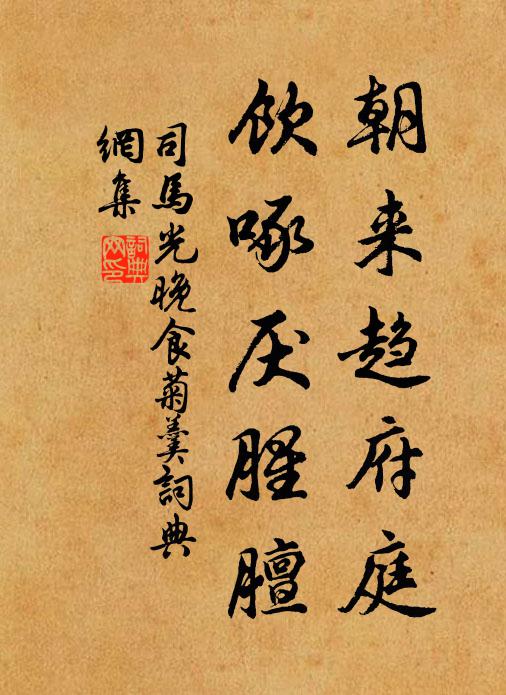 朝来趋府庭
饮啄厌腥膻
司馬光晚食菊羹詞典
網集
詞典
网印